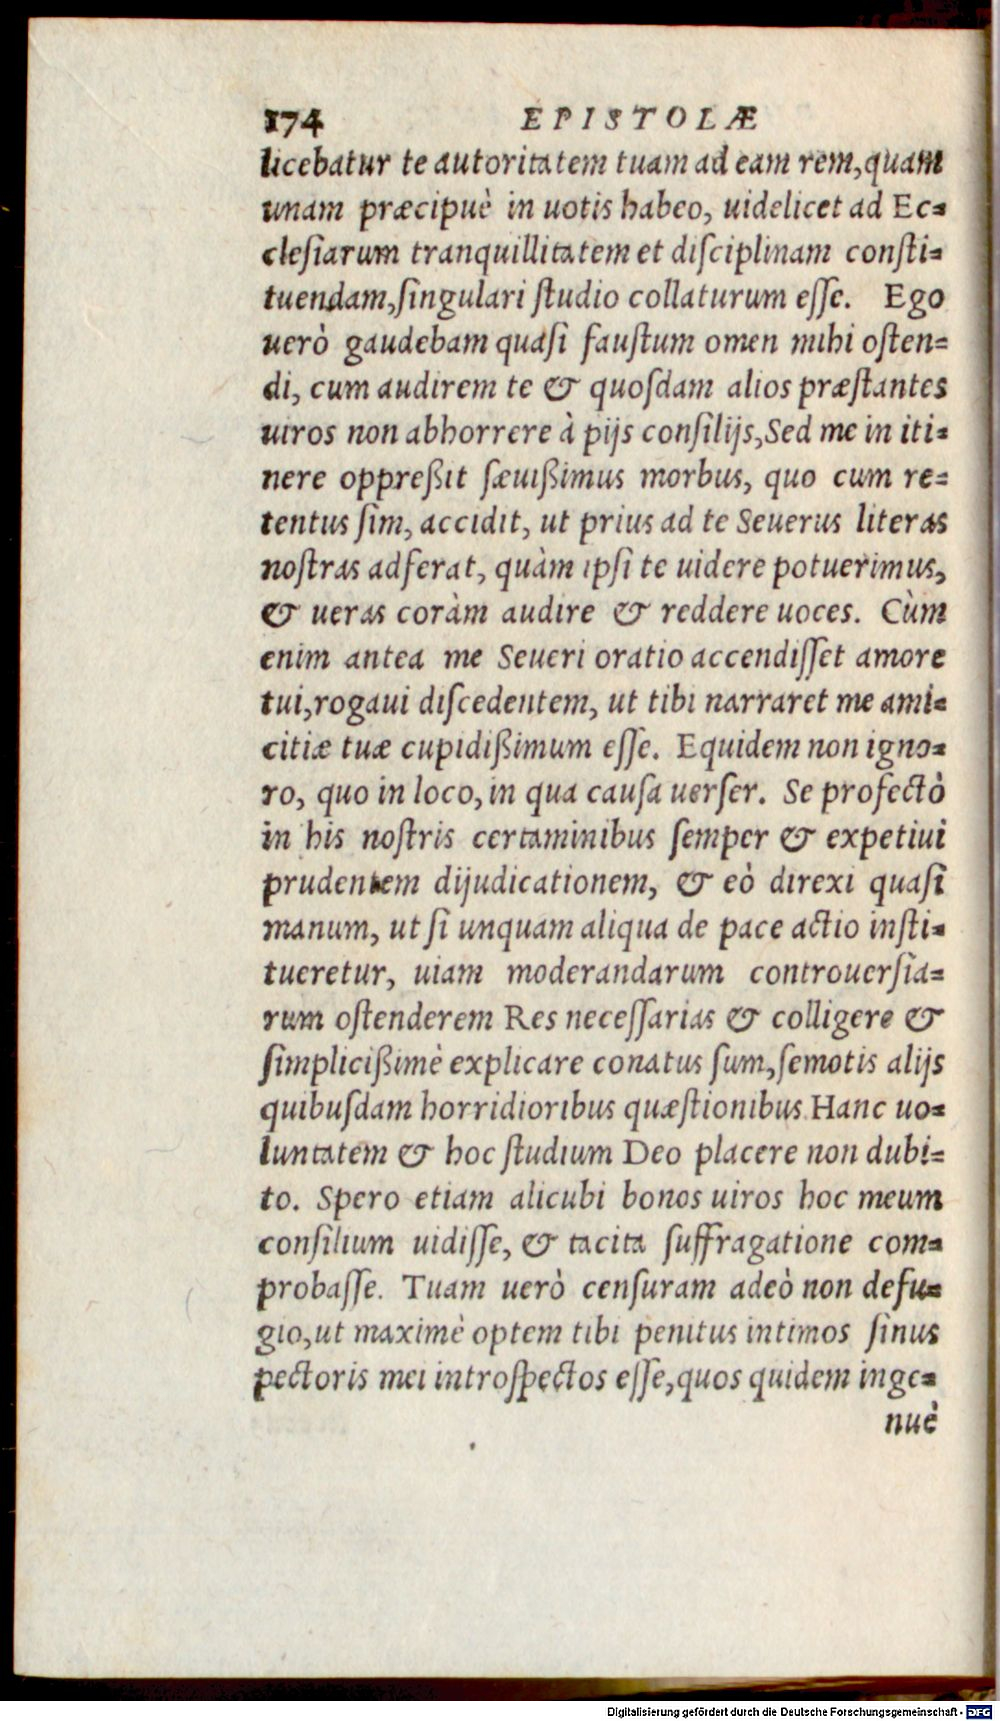 174 EPISTOLÆ
licebatur te autoritatem tuam ad eam rem, quam
unam præcipuè in uotis habeo, uidelicet ad Ec=
clesiarum tranquillitatem et disciplinam consti=
tuendam, singulari studio collaturum esse. Ego
uerò gaudebam quasi faustum omen mihi osten=
di, cum audirem te & quosdam alios præstantes
uiros non abhorrere à pijs consilijs, Sed me in iti=
nere oppreßit sæuißimus morbus, quo cum re=
tentus sim, accidit, ut prius ad te Seuerus literas
nostras adferat, quàm ipsi te uidere potuerimus,
& ueras coràm audire & reddere uoces. Cùm
enim antea me Seueri oratio accendisset amore
tui, rogaui discedentem, ut tibi narraret me ami=
citiæ tuæ cupidißimum esse. Equidem non igno=
ro, quo in loco, in qua causa uerser. Se profectò
in his nostris certaminibus semper & expetiui
prudentem dijudicationem, & eò direxi quasi
manum, ut si unquam aliqua de pace actio insti=
tueretur, uiam moderandarum controuersia=
rum ostenderem Res necessarias & colligere &
simplicißimè explicare conatus sum, semotis alijs
quibusdam horridioribus quæstionibus. Hanc uo=
luntatem & hoc studium Deo placere non dubi=
to. Spero etiam alicubi bonos uiros hoc meum
consilium uidisse, & tacita suffragatione com=
probasse. Tuam uerò censuram adeò non defu=
gio, ut maximè optem tibi penitus intimos sinus
pectoris mei introspectos esse, quos quidem inge=
nuè
Digitalisierung gefördert durch die Deutsche Forschungsgemeinschaft - DFG